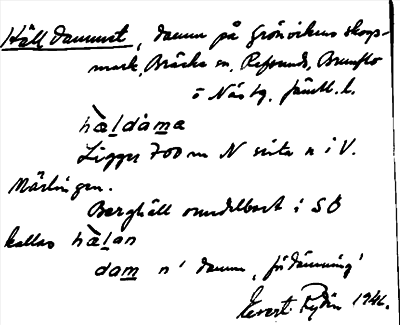 Hälldammet, damm på Grönvikens skogs-
mark, Bräcke sn, Refsunds, Brunflo
o Näs tg, Jämtl. l.
hàḷdàma
Ligger 700 m N sista n i V.
Mårtingen.
Berghäll omedelbart i SÖ
kallas hæ̀ḷan
dam n' damm, fördämning'
Evert Rydin 1941.